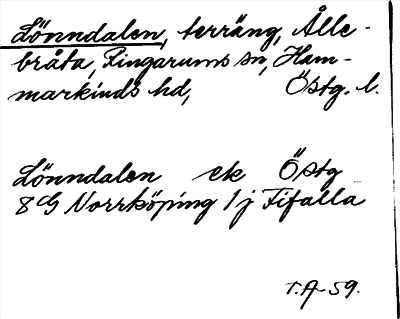 Lönndalen, terräng, Ålle-
bråta, Ringarums sn, Ham-
markinds hd, Östg. l.
Lönndalen ek Östg
8G Norrköping 1j Fifalla
T.A-59.